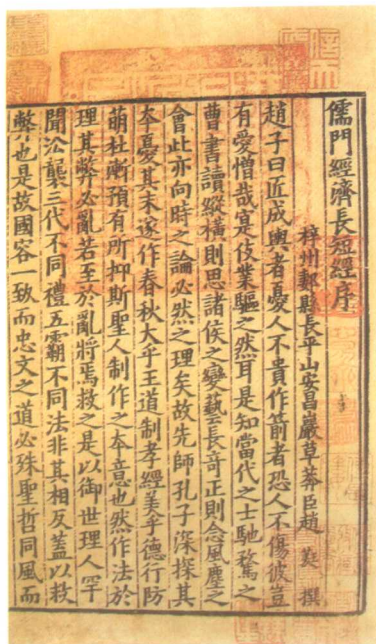 儒門經濟長短經序
梓州郪縣長平山安昌巖草莽臣趙蕤撰
趙子曰匠成輿者憂人不貴作箭者恐人不傷彼豈
有愛憎哉寔伎業驅之然耳是知當代之士馳騖之
曹書讀縱橫則思諸侯之變藝長奇正則念風塵之
會此亦向時之論必然之理矣故先師孔子深探其
本憂其末遂作春秋大乎王道制孝經美乎德行防
萌杜漸預有所抑斯聖人制作之本意也然作法於
理其弊必亂若至於亂將焉救之是以御世理人罕
聞沿襲三代不同禮五霸不同法非其相反蓋以救
弊也是故國容一致而忠文之道必殊聖哲同風而